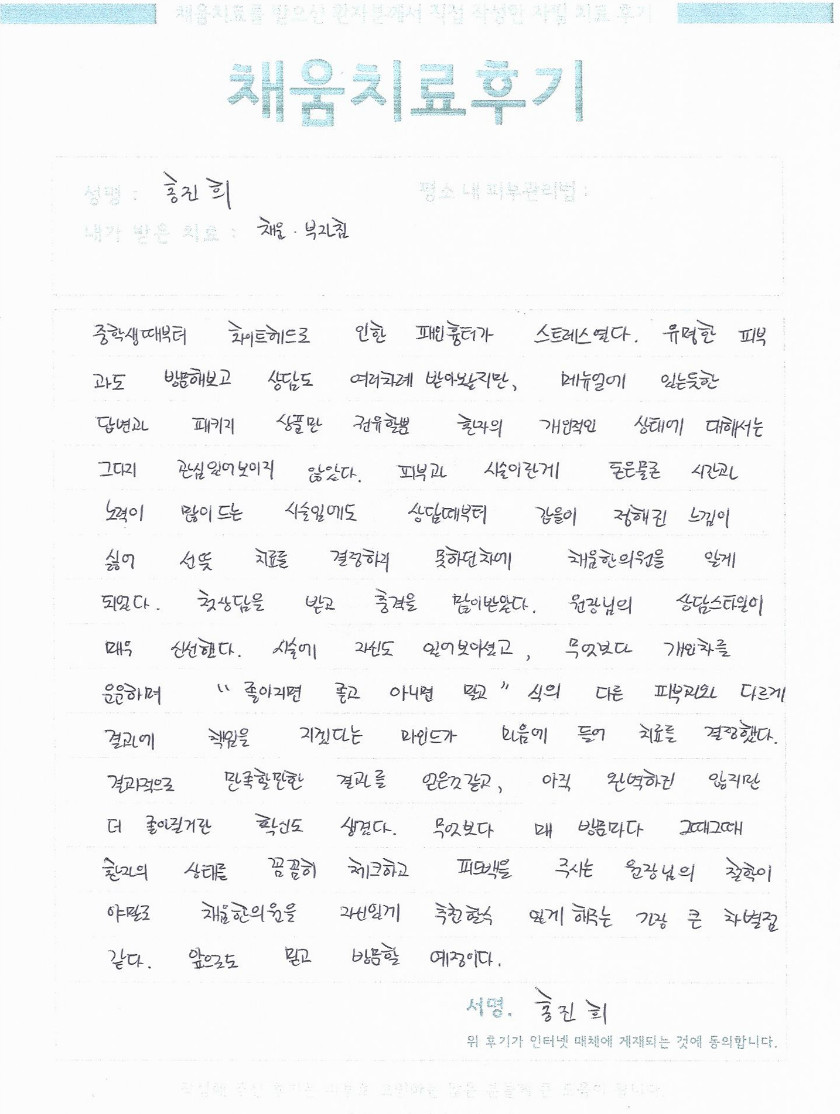 채움치료를 받으신 환자분께서 직접 작성한 자필 치료 후기
채움치료후기
성명 : 홍진희 평소 내 피부관리법 :
내가 받은 치료 : 채움 · 부지침
중학생때부터 화이트헤드로 인한 패인흉터가 스트레스였다. 유명한 피부
과도 방문해보고 상담도 여러차례 받아보았지만, 메뉴얼에 있는듯한
답변과 패키지 상품만 권유할뿐 환자의 개인적인 상태에 대해서는
그다지 관심있어보이지 않았다. 피부과 시술이란게 돈은물론 시간과
노력이 많이 드는 시술임에도 상담때부터 갑을이 정해진 느낌이
싫어 선뜻 치료를 결정하지 못하던차에 채움한의원을 알게
되었다. 첫상담을 받고 충격을 많이받았다. 원장님의 상담스타일이
매우 신선했다. 시술에 자신도 있어보이셨고, 무엇보다 개인차를
운운하며 “ 좋아지면 좋고 아니면 말고 ” 식의 다른 피부과와 다르게
결과에 책임을 지겠다는 마인드가 마음에 들어 치료를 결정했다.
결과적으로 만족할만한 결과를 얻은것같고, 아직 완벽하진 않지만
더 좋아질거란 확신도 생겼다. 무엇보다 매 방문마다 그때그때
환자의 상태를 꼼꼼히 체크하고 피드백을 주시는 원장님의 철학이
야말로 채움한의원을 자신있게 추천할수 있게 해주는 가장 큰 차별점
같다. 앞으로도 믿고 방문할 예정이다.
서명. 홍진희
위 후기가 인터넷 매체에 게재되는 것에 동의합니다.